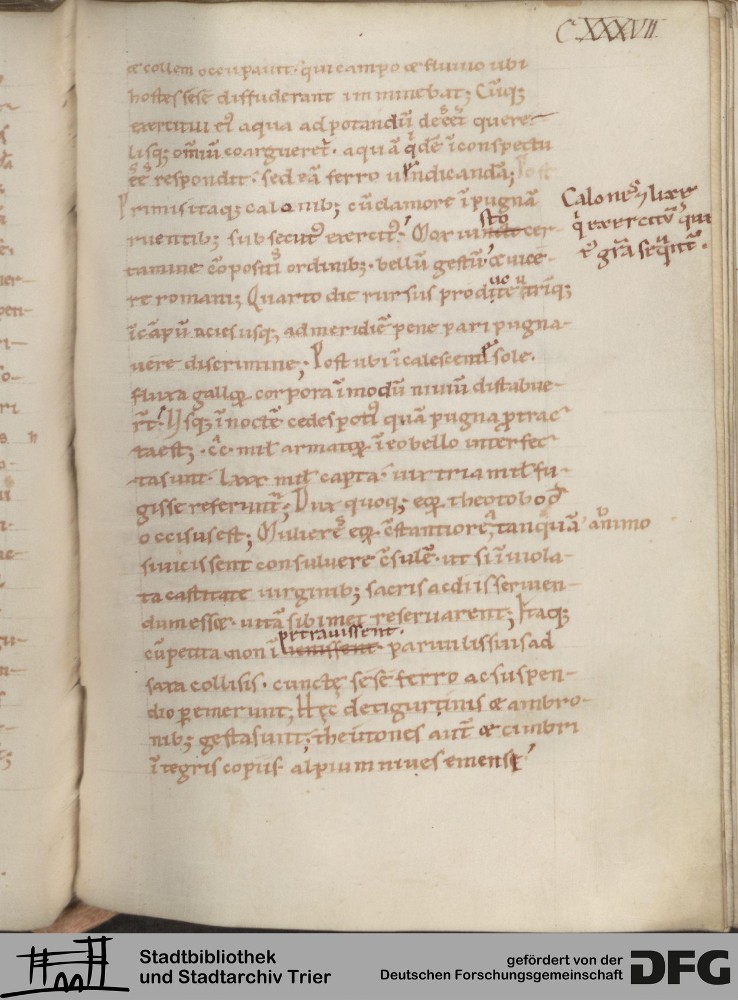 CXXXVII
et collem occupauit· qui campo et fluuio ubi
hostes sese diffuderant imminebat; Cūq;
exercitui ei' aqua ad potandū deēēt quere-
lisq; omiū coarguerēt· aquā q̇dē ī conspectu
ēē respondit· sed eā ferro uendicandā; Post
Primis itaq; calonib; cū clamore ī pugnā
ruentib; subsecut' exercit'; Mox iusto cer-
tamine cōpositis ordinib;· bellū gestū· et uice-
re romani; Quarto die rursus productę utriq;
ī cāpū acies usq; ad meridiē pene pari pugna-
uere discrimine; Post ubi īcalescente sole·
fluxa galloꝝ corpora ī modū niuiū distabue-
rt̄; Usq; ī noctē cedes poti' quā pugna ꝓtrac-
ta est; ·C̄C· mil armatoꝝ ī eo bello interfec-
ta sunt· Lxxx mil capta· uix tria mil fu-
gisse referunt̄; Dux quoq; eoꝝ theotobod'
occisus est; Mulieres eoꝝ c̄stantiore, tanquā animo
si uicissent consuluere c̄sulē· ut si ī uiola-
ta castitate uirginib; sacris ac diis seruien-
dum esset· uitā sibimet reseruarent; Itaq;
petrauissent·
cū petita non ī uenissent· paruulis suis ad
saxa collisis· cunctę sese ferro ac suspen-
dio ꝑemerunt; Hęc de tigurinis et ambro-
nib; gesta sunt; theutones aut̄ et cimbri
ītegris copiis alpium niues emensi
Calones, lixe
q̇ exercitū qui
ē grā sequit̄·
Stadtbibliothek
und Stadtarchiv Trier
gefördert von der
Deutschen Forschungsgemeinschaft
DFG